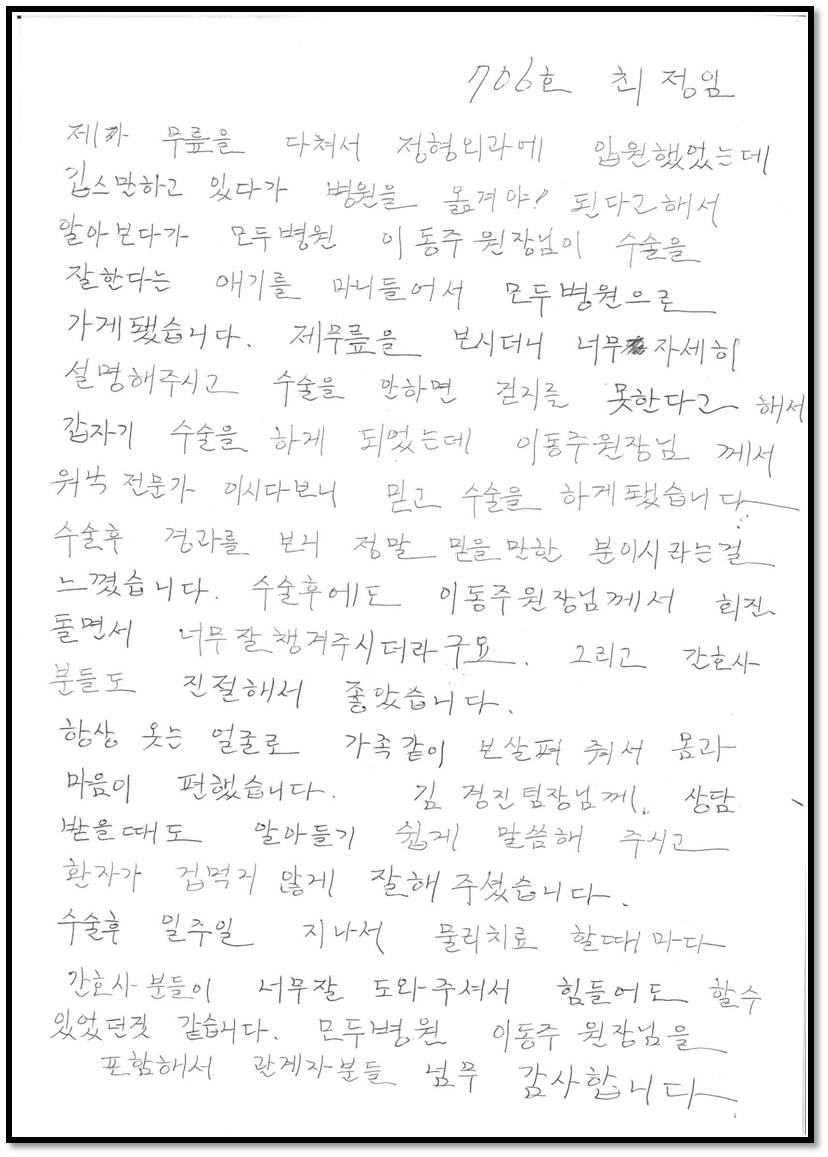 706호 최정임
제가 무릎을 다쳐서 정형외과에 입원했었는데
깁스만하고 있다가 병원을 옮겨야! 된다고해서
알아보다가 모두병원 이동주원장님이 수술을
잘한다는 얘기를 마니들어서 모두병원으로
가게됐습니다. 제무릎을 보시더니 너무 자세히
설명해주시고 수술을 안하면 걷지를 못한다고 해서
갑자기 수술을 하게 되었는데 이동주원장님 께서
워낙 전문가 이시다보니 믿고 수술을 하게됐습니다
수술후 경과를 보니 정말 믿을만한 분이시라는걸
느꼈습니다. 수술후에도 이동주원장님께서 회진
돌면서 너무잘챙겨주시더라구요. 그리고 간호사
분들도 친절해서 좋았습니다.
항상 웃는 얼굴로 가족같이 보살펴 줘서 몸과
마음이 편했습니다. 김경진팀장님께. 상담
받을때도 알아듣기 쉽게 말씀해 주시고
환자가 겁먹지 않게 잘해주셨습니다.
수술후 일주일 지나서 물리치료 할때마다
간호사분들이 너무잘 도와주셔서 힘들어도 할수
있었던것 같습니다. 모두병원 이동주 원장님을
포함해서 관계자분들 넘무 감사합니다